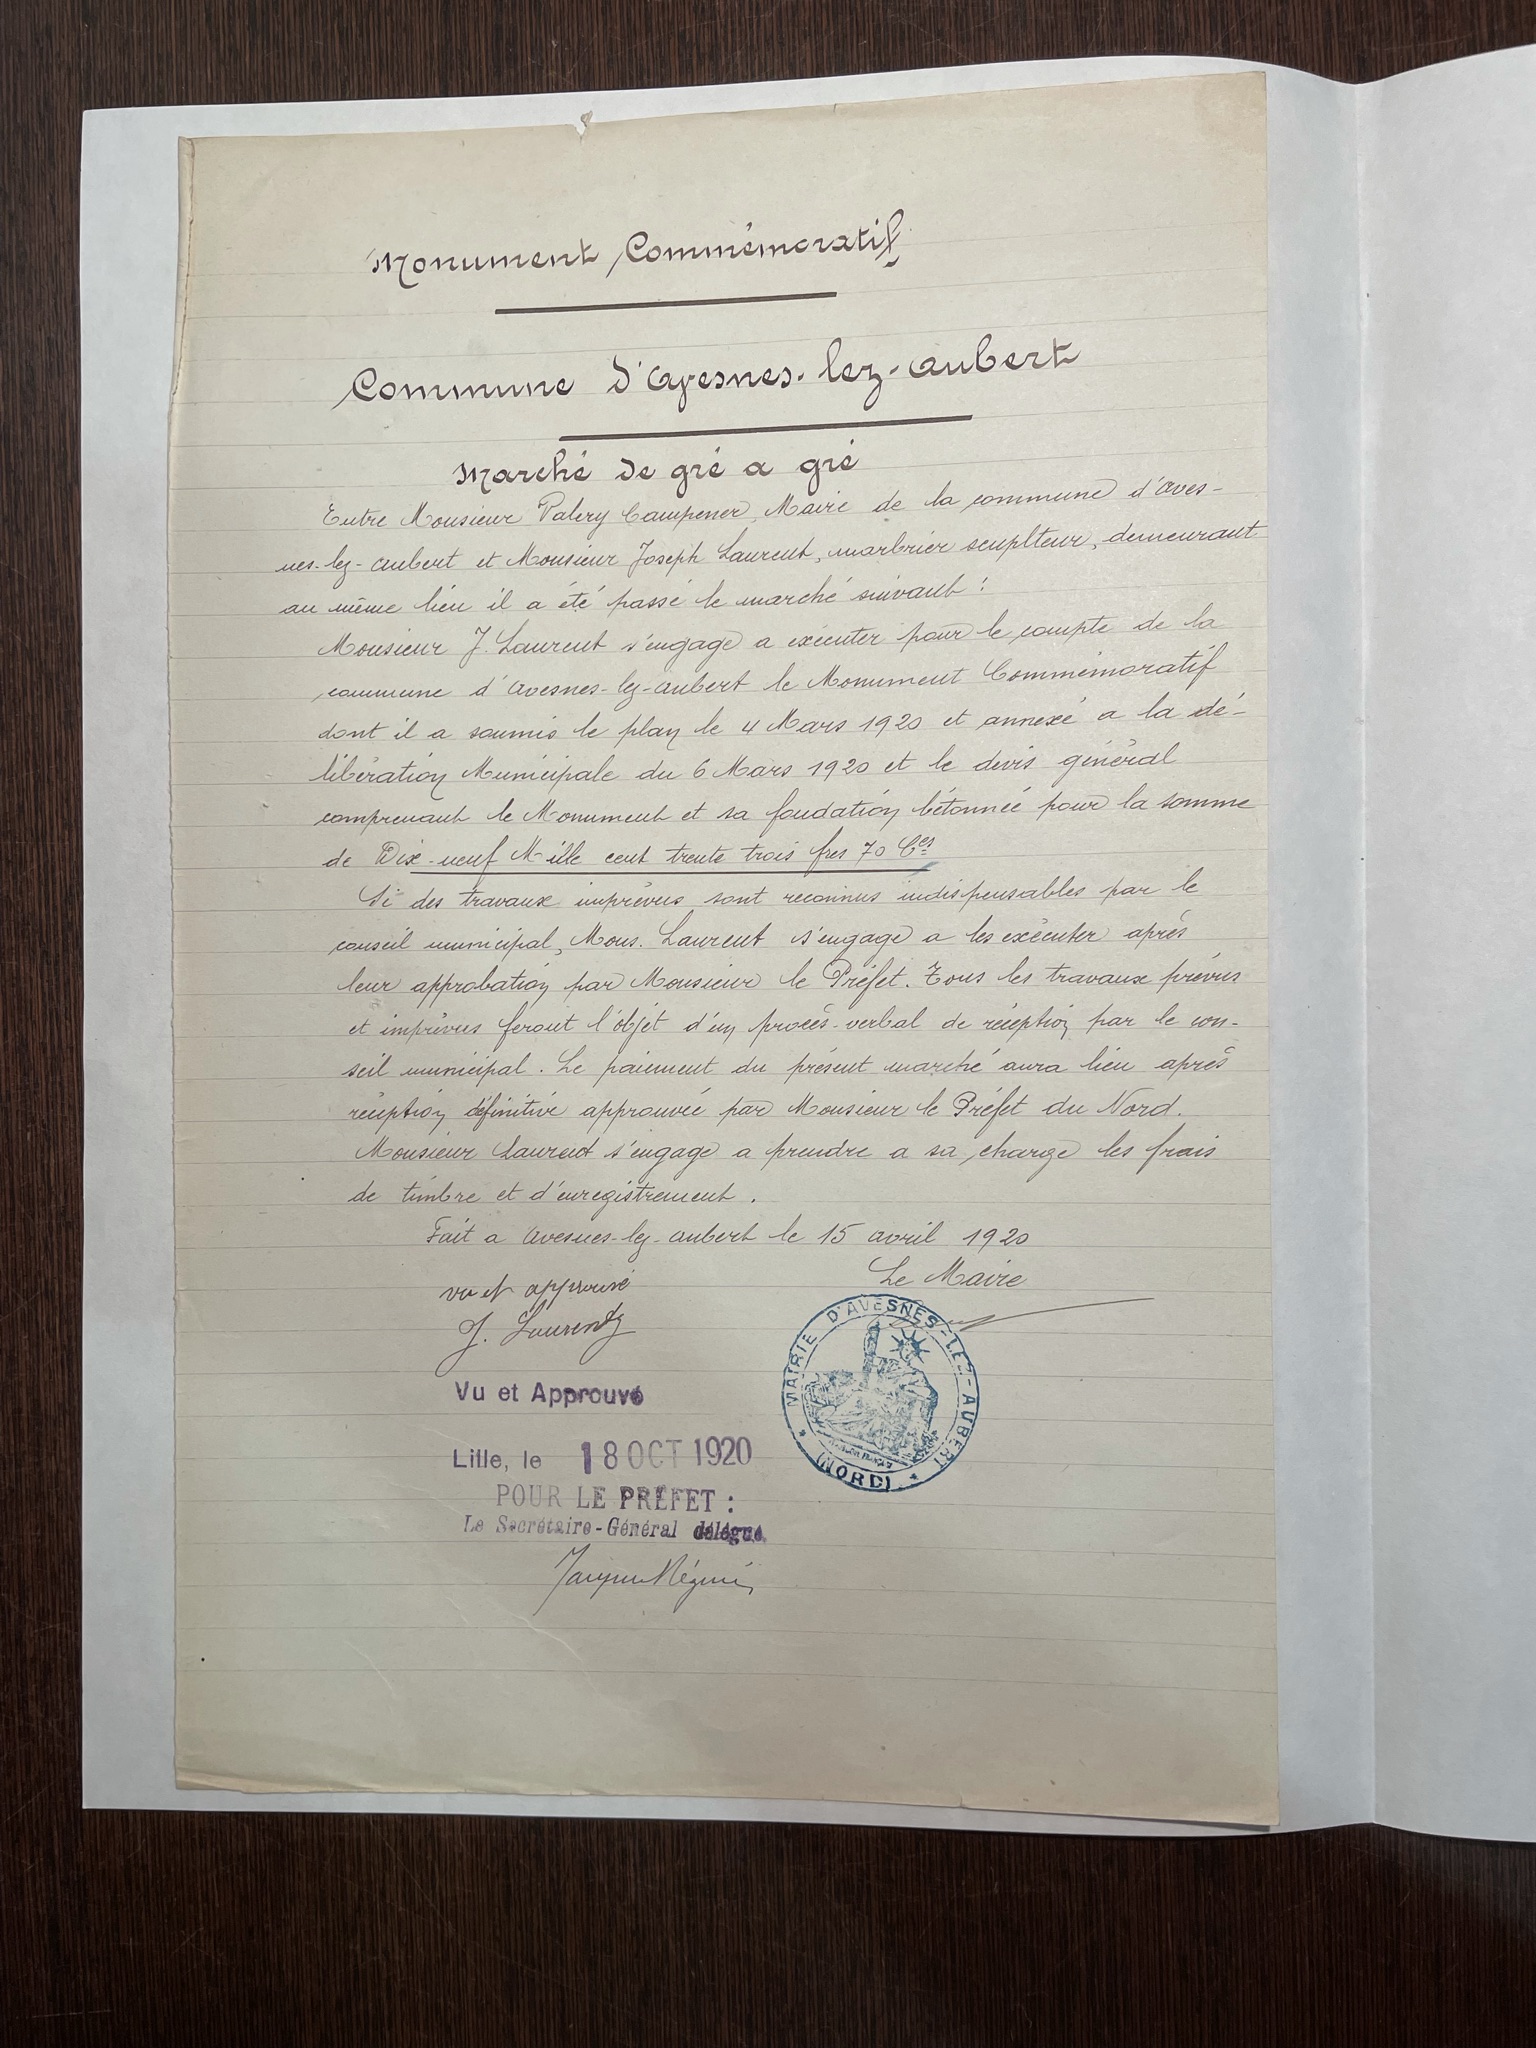 Monument Commémoratif
Commune d'Avesnes-lez-Aubert
Marché de gré a gré
Entre Monsieur Paléry Campener, Maire de la commune d'Aves-
nes-lez-Aubert et Monsieur Joseph Laurent, marbrier scuplteur, demeurant
au même lieu il a été passé le marché suivant :
Monsieur J. Laurent s'engage a exécuter pour le compte de la
commune d'Avesnes-lez-Aubert le Monument Commémoratif
dont il a soumis le plan le 4 Mars 1920 et annexé a la dé-
libération Municipale du 6 Mars 1920 et le devis général
comprenant le Monument et sa fondation bétonnée pour la somme
de Dix-neuf Mille cent trente trois frcs 70 Ces
Si des travaux imprévus sont reconnus indispensables par le
conseil municipal, Mons. Laurent s'engage a les exécuter après
leur approbation par Monsieur le Préfet. Tous les travaux prévus
et imprévus feront l'objet d'un procès-verbal de réception par le con-
seil municipal. Le paiement du présent marché aura lieu après
réception définitive approuvée par Monsieur le Préfet du Nord.
Monsieur Laurent s'engage a prendre a sa charge les frais
de timbre et d'enregistrement.
Fait a Avesnes-lez-Aubert le 15 avril 1920
Le Maire
vu et approuvé
J. Laurent
MAIRIE D'AVESNES-LEZ-AUBERT
(NORD)
Vu et Approuvé
Lille, le 18 OCT 1920
POUR LE PRÉFET :
Le Secrétaire-Général délégué